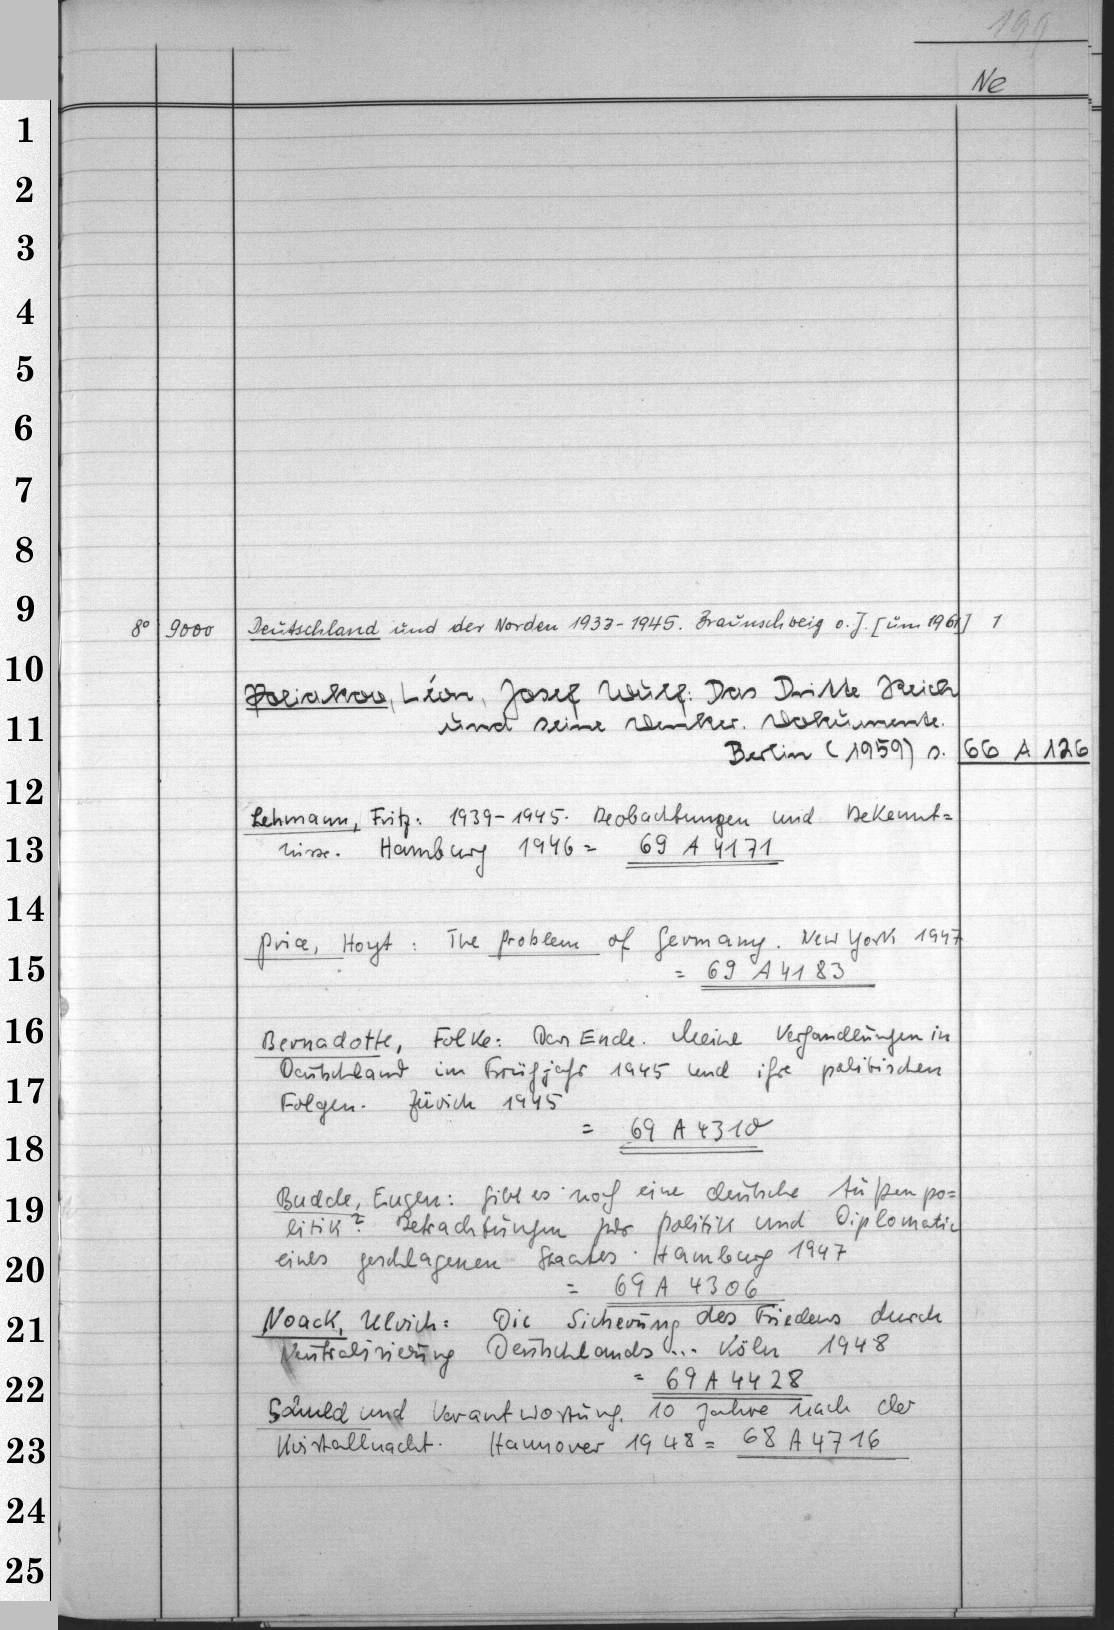 199
Ne
1
2
3
4
5
6
7
8
9
8° 9000 Deutschland und der Norden 1933-1945. Braunschweig o. J. [um 1961] 1
10
Poliakov, Léon, Josef Wulf: Das Dritte Reich
11
und seine Denker. Dokumente.
Berlin (1959) s. 66 A 126
12
Lehmann, Fritz: 1939-1945. Beobachtungen und Bekennt=
13
nisse. Hamburg 1946 = 69 A 4171
14
Price, Hoyt: The Problem of Germany. New York 1947
15
= 69 A 4183
16
Bernadotte, Folke: Das Ende. Meine Verhandlungen in
Deutschland im Frühjahr 1945 und ihre politischen
17
Folgen. Zürich 1945
18
= 69 A 4310
19
Budde, Eugen: Gibt es noch eine deutsche Außenpo=
litik? Betrachtungen zur Politik und Diplomatie
20
eines geschlagenen Staates. Hamburg 1947
= 69 A 4306
21
Noack, Ulrich: Die Sicherung des Friedens durch
Neutralisierung Deutschlands ... Köln 1948
22
= 69 A 4428
Schuld und Verantwortung. 10 Jahre nach der
23
Kristallnacht. Hannover 1948 = 68 A 4716
24
25